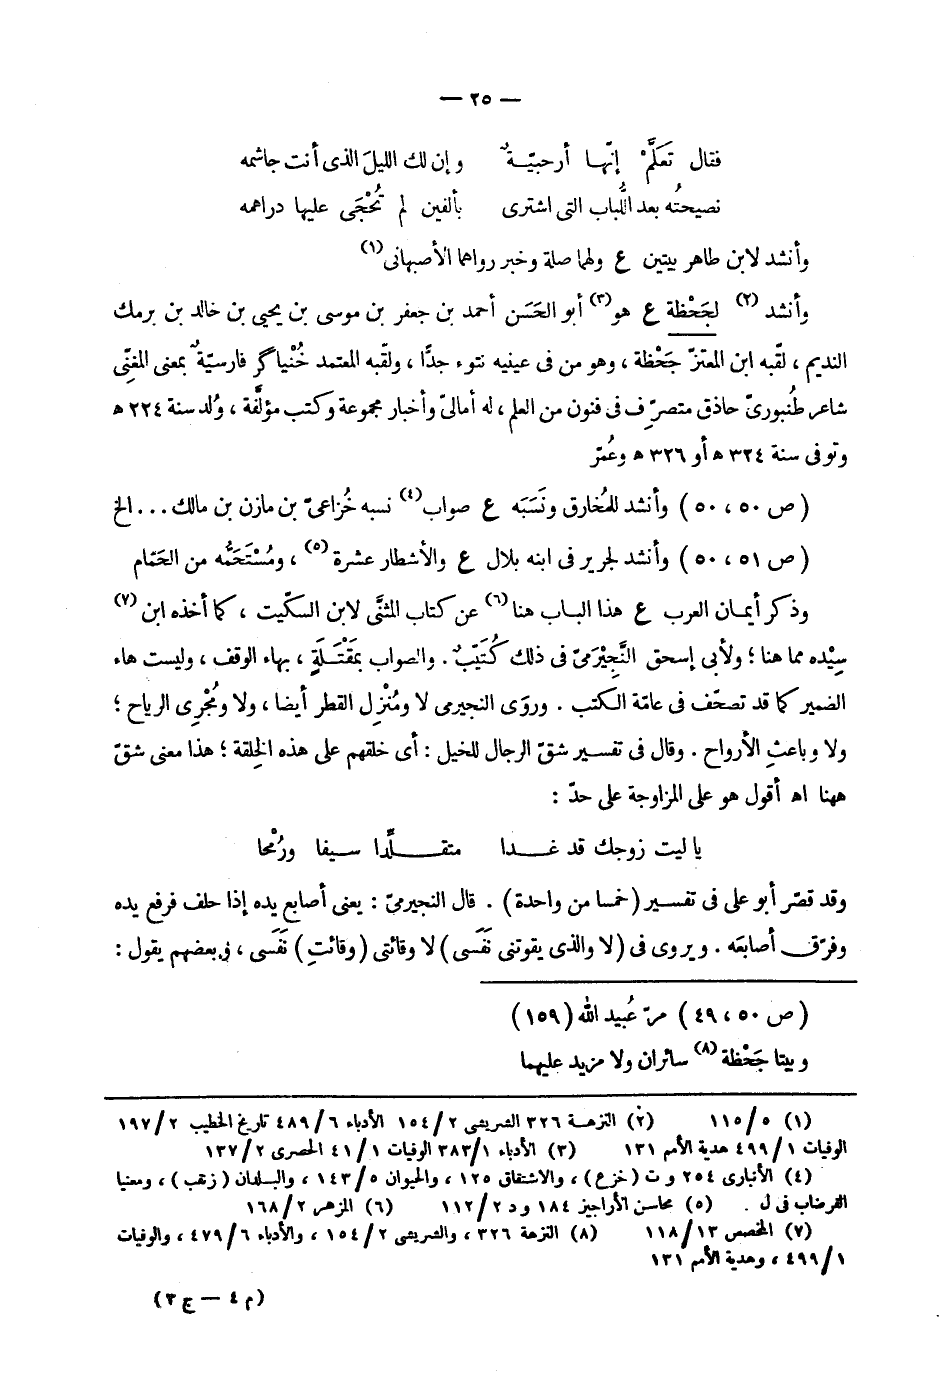 — ٢٥ —
فقال تَعَلَّمْ إنّها أرحبيّةٌ وإن لك الليلَ الذى أنت جاشمه
نصيحتُه بعد اللُّباب التى اشترى بألفين لم تُحْجَى عليها دراهمه
وأنشد لابن طاهر بيتين ع ولهما صلة وخبر رواهما الأصبهانى(١)
وأنشد (٢) لجَحْظة ع هو(٣) أبو الحَسَن أحمد بن جعفر بن موسى بن يحيى بن خالد بن برمك
النديم ، لقّبه ابن المعتزّ جَحْظة ، وهو من فى عينيه نتوء جدًّا ، ولقّبه المعتمد خُنْياگر فارسيّةٌ بمعنى المغنّى
شاعر طُنبورىّ حاذق متصرّف فى فنون من العلم ، له أمالىّ وأخبار مجموعة وكتب مؤلَّفة ، وُلد سنة ٢٢٤ ه
وتوفى سنة ٣٢٤ ه أو ٣٢٦ ه وعُمّر
( ص ٥٠ ، ٥٠ ) وأنشد للمُخارق ونَسَبَه ع صواب(٤) نسبه خُزاعىّ بن مازن بن مالك ... الخ
( ص ٥١ ، ٥٠ ) وأنشد لجرير فى ابنه بلال ع والأشطار عشرة(٥) ، ومُسْتَحَمُّه من الحَمّام
وذكر أيمان العرب ع هذا الباب هنا(٦) عن كتاب المثنَّى لابن السكّيت ، كما أخذه ابن(٧)
سِيْده مما هنا ؛ ولأبى إسحق النَّجِيْرَمىّ فى ذلك كُتَيّبٌ . والصواب بمَقْتَلَةٍ ، بهاء الوقف ، وليست هاء
الضمير كما قد تصحّف فى عامّة الكتب . وروَى النجيرمى لا ومُنْزِل القطر أيضا ، ولا ومُجْرِى الرياح ؛
ولا وباعثِ الأرواح . وقال فى تفسير شقّ الرجال للخيل : أى خلقهم على هذه الخِلقة ؛ هذا معنى شقّ
ههنا اه أقول هو على المزاوجة على حدّ :
يا ليت زوجك قد غدا متقلّدا سيفا ورُمْحا
وقد قصّر أبو على فى تفسير (خمسا من واحدة) . قال النجيرمىّ : يعنى أصابع يده إذا حلف فرفع يده
وفرّق أصابعَه . ويروى فى (لا والذى يقوتنى نَفَسى) لا وقائتى (وقائتِ) نَفَسى ، فبعضهم يقول :
( ص ٥٠ ، ٤٩ ) مرّ عُبيد الله (١٥٩)
وبيتا جَحْظة(٨) سائران ولا مزيد عليهما
(١) ٥/١١٥ (٢) النزهة ٣٢٦ الشريشى ٢/١٥٤ الأدباء ٦/٤٨٩ تاريخ الخطيب ٢/١٩٧
الوفيات ١/٤٩٩ هدية الأمم ١٣١ (٣) الأدباء ١/٣٨٣ الوفيات ١/٤١ الحصرى ٢/١٣٧
(٤) الأنبارى ٢٥٤ و ت (خزع) ، والاشتقاق ١٢٥ ، والحيوان ٥/١٤٣ ، والبلدان (زهب) ، ومعنيا
القرضاب فى ل . (٥) محاسن الأراجيز ١٨٤ و د ٢/١١٢ (٦) المزهر ٢/١٦٨
(٧) المخصص ١٣/١١٨ (٨) النزهة ٣٢٦ ، والشريشى ٢/١٥٤ ، والأدباء ٦/٤٧٩ ، والوفيات
١/٤٩٩ ، وهدية الأمم ١٣١
(م ٤ — ج ٣)